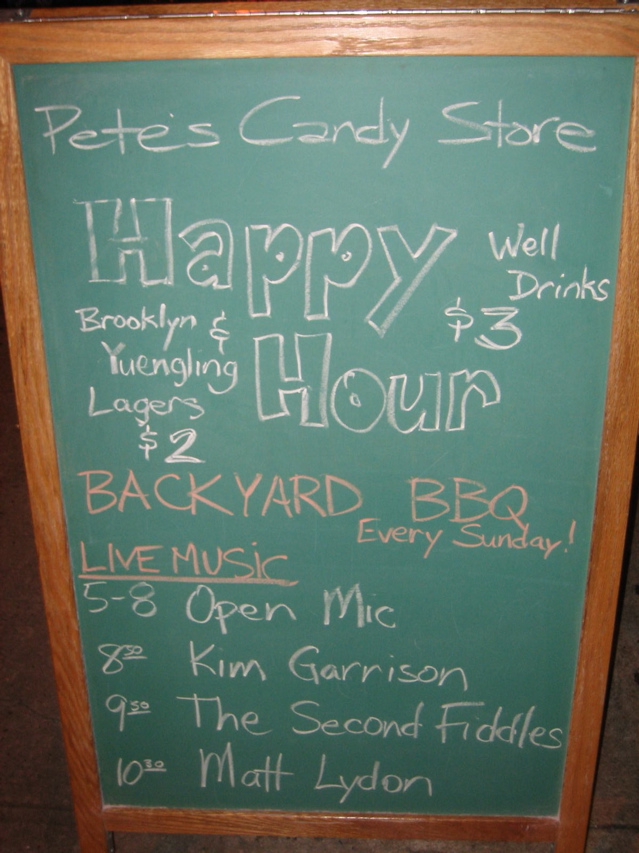 Pete's Candy Store
Happy
Hour
Well
Drinks
$3
Brooklyn &
Yuengling
Lagers
$2
BACKYARD BBQ
Every Sunday!
LIVE MUSIC
5-8 Open Mic
8:30 Kim Garrison
9:30 The Second Fiddles
10:30 Matt Lydon